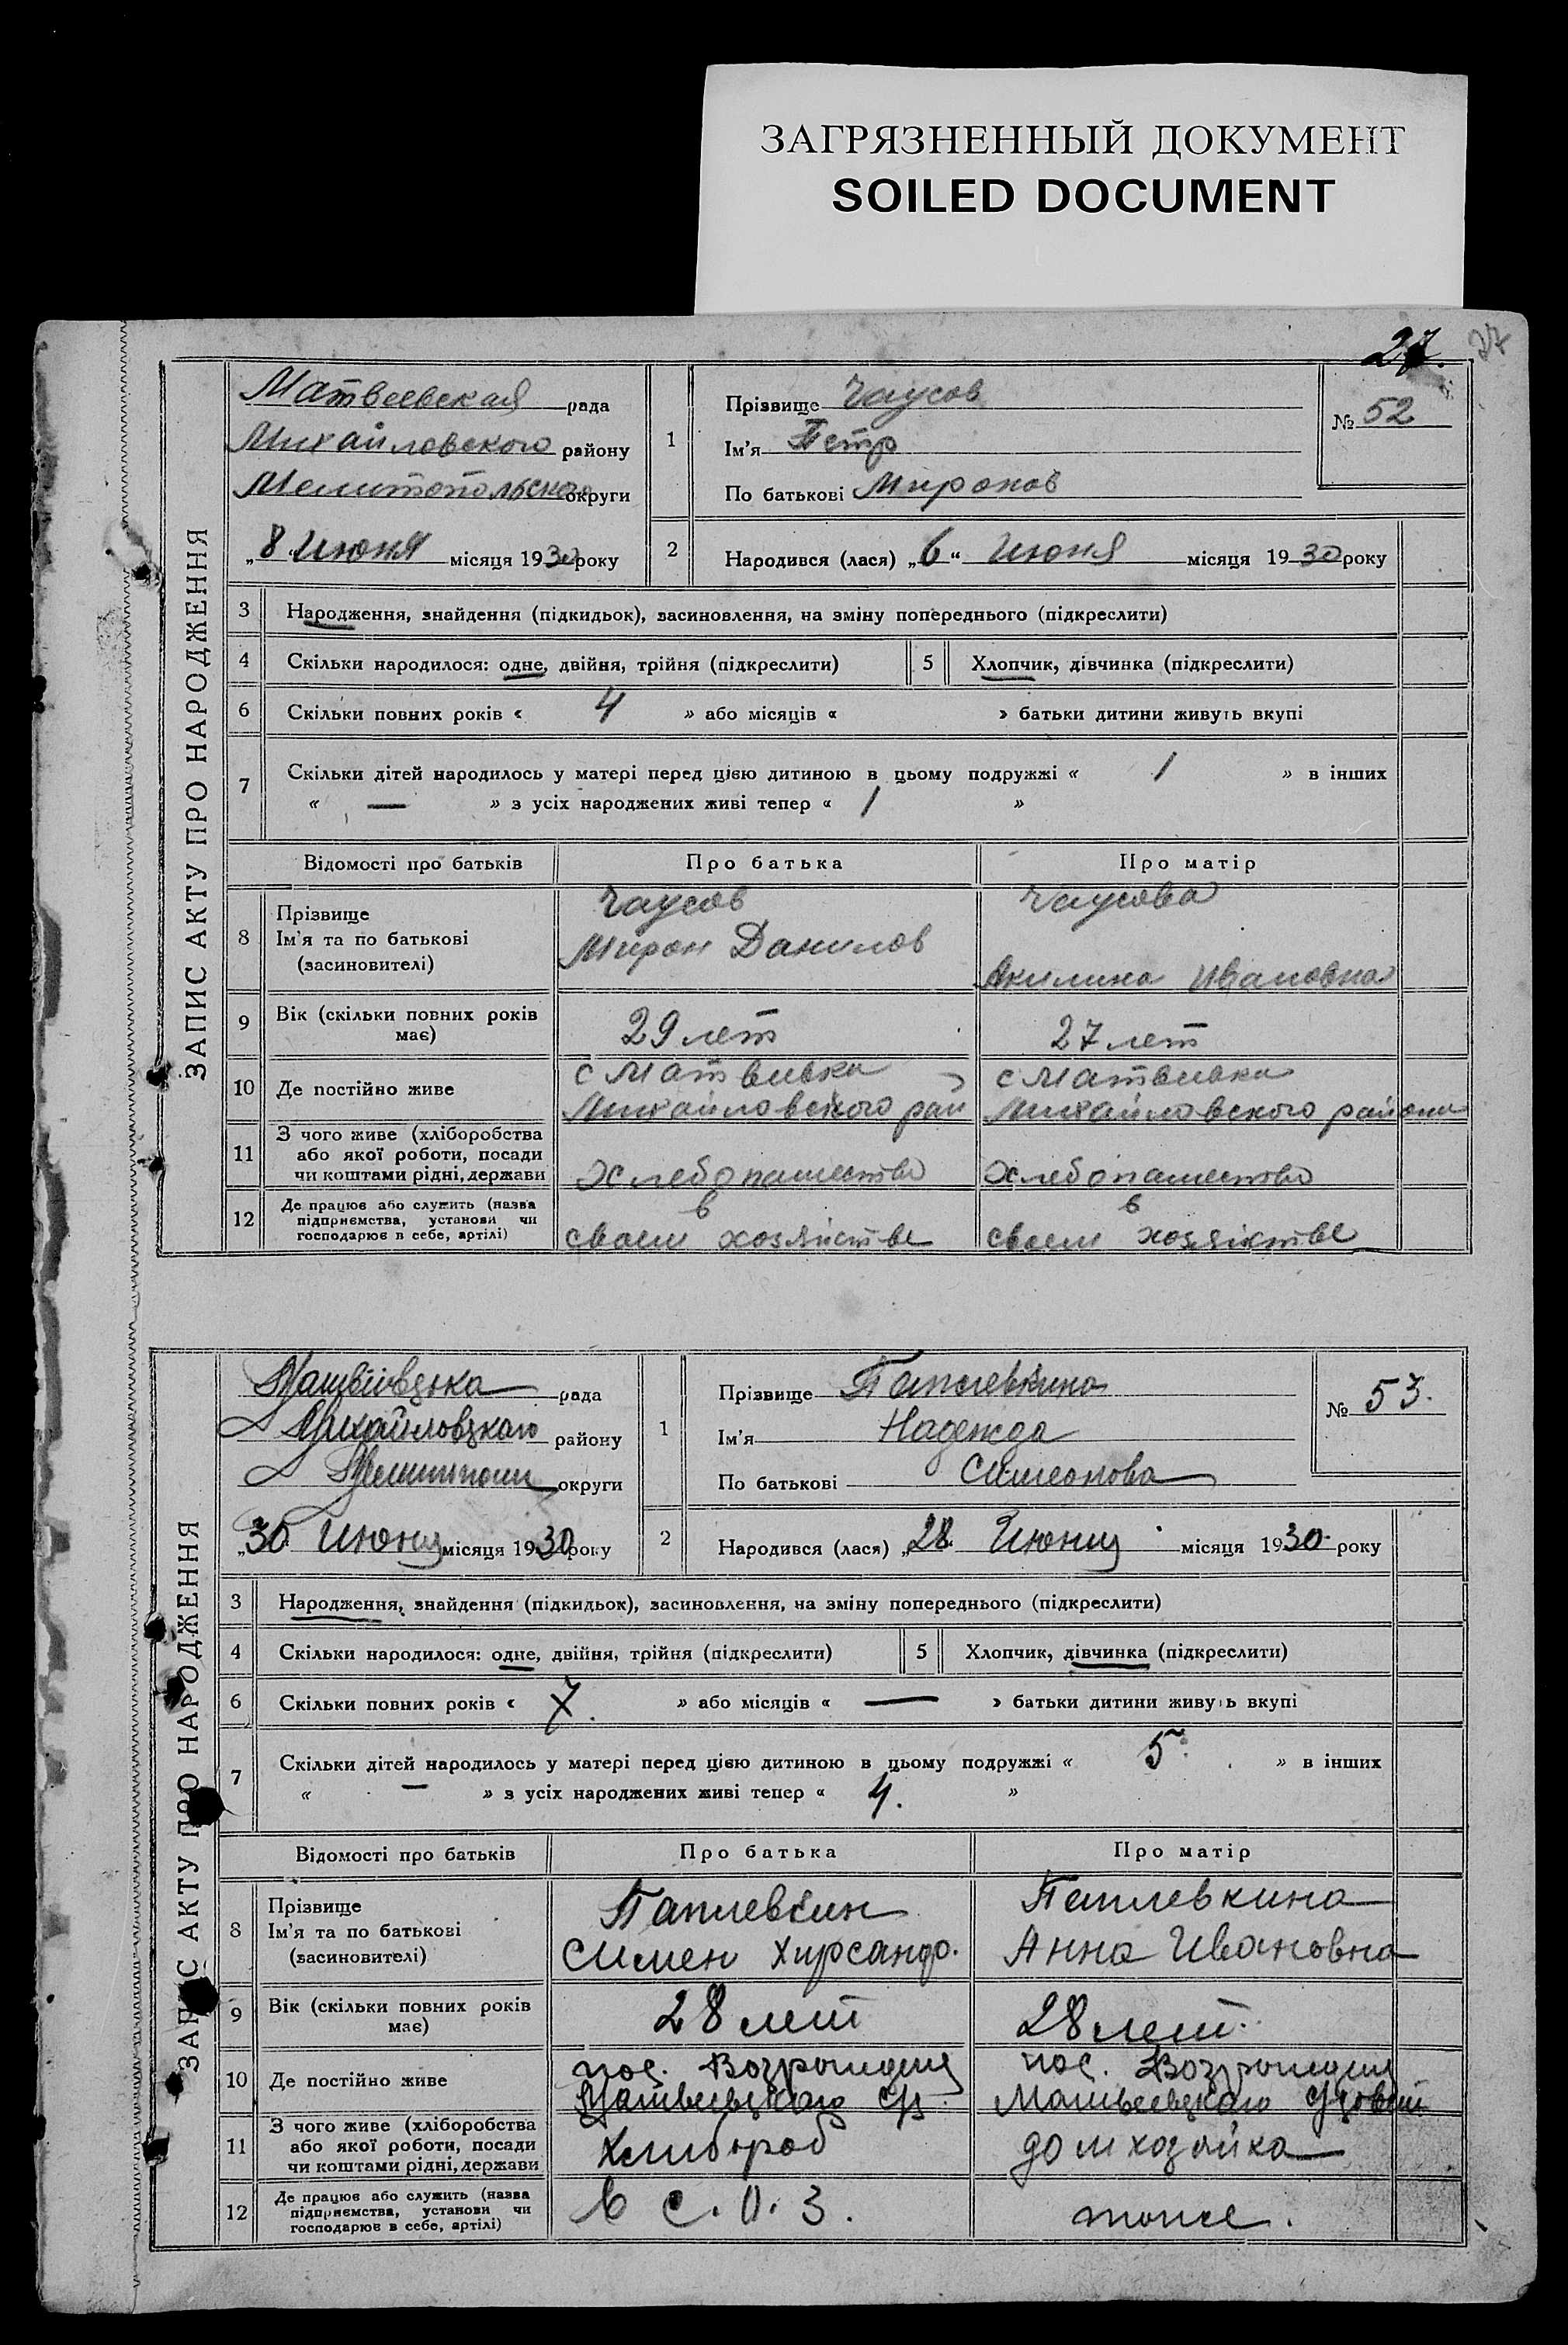 ЗАГРЯЗНЕННЫЙ ДОКУМЕНТ
SOILED DOCUMENT
27
ЗАПИС АКТУ ПРО НАРОДЖЕННЯ
Матвеевская рада
Михайловского району
Мелитопольского округи
„8 Июня місяця 1930 року
1
Прізвище Чаусов
Ім'я Петр
По батькові Миронов
№ 52
2
Народився (лася) „6“ Июня місяця 1930 року
3 Народження, знайдення (підкидьок), засиновлення, на зміну попереднього (підкреслити)
4 Скільки народилося: одне, двійня, трійня (підкреслити) 5 Хлопчик, дівчинка (підкреслити)
6 Скільки повних років « 4 » або місяців « » батьки дитини живуть вкупі
7 Скільки дітей народилось у матері перед цією дитиною в цьому подружжі « 1 » в інших
« — » з усіх народжених живі тепер « 1 »
Відомості про батьків Про батька Про матір
8 Прізвище
Ім'я та по батькові
(засиновителі)
Чаусов
Мирон Данилов
Чаусова
Акилина Ивановна
9 Вік (скільки повних років
має)
29 лет
27 лет
10 Де постійно живе
с Матвеивка
Михайловского рай
с Матвеивка
Михайловского района
11 З чого живе (хліборобства
або якої роботи, посади
чи коштами рідні, держави
Хлебопашество
Хлебопашество
12 Де працює або служить (назва
підприємства, установи чи
господарює в себе, артілі)
в
своем хозяйстве
в
своем хозяйстве
ЗАПИС АКТУ ПРО НАРОДЖЕННЯ
Матвіївська рада
Михайловского району
округи
„30 Июня місяця 1930 року
1
Прізвище
Ім'я Надежда
По батькові Симеонова
№ 53.
2
Народився (лася) „28. Июня місяця 1930 року
3 Народження, знайдення (підкидьок), засиновлення, на зміну попереднього (підкреслити)
4 Скільки народилося: одне, двійня, трійня (підкреслити) 5 Хлопчик, дівчинка (підкреслити)
6 Скільки повних років « 7. » або місяців « — » батьки дитини живуть вкупі
7 Скільки дітей народилось у матері перед цією дитиною в цьому подружжі « 5. » в інших
« — » з усіх народжених живі тепер « 4. »
Відомості про батьків Про батька Про матір
8 Прізвище
Ім'я та по батькові
(засиновителі)
Симен
Анна Ивановна
9 Вік (скільки повних років
має)
28 лет
28 лет.
10 Де постійно живе
пос.
пос.
Матвеевского
11 З чого живе (хліборобства
або якої роботи, посади
чи коштами рідні, держави
Хлибороб
домхозяйка
12 Де працює або служить (назва
підприємства, установи чи
господарює в себе, артілі)
в С.О.З.
тоже.